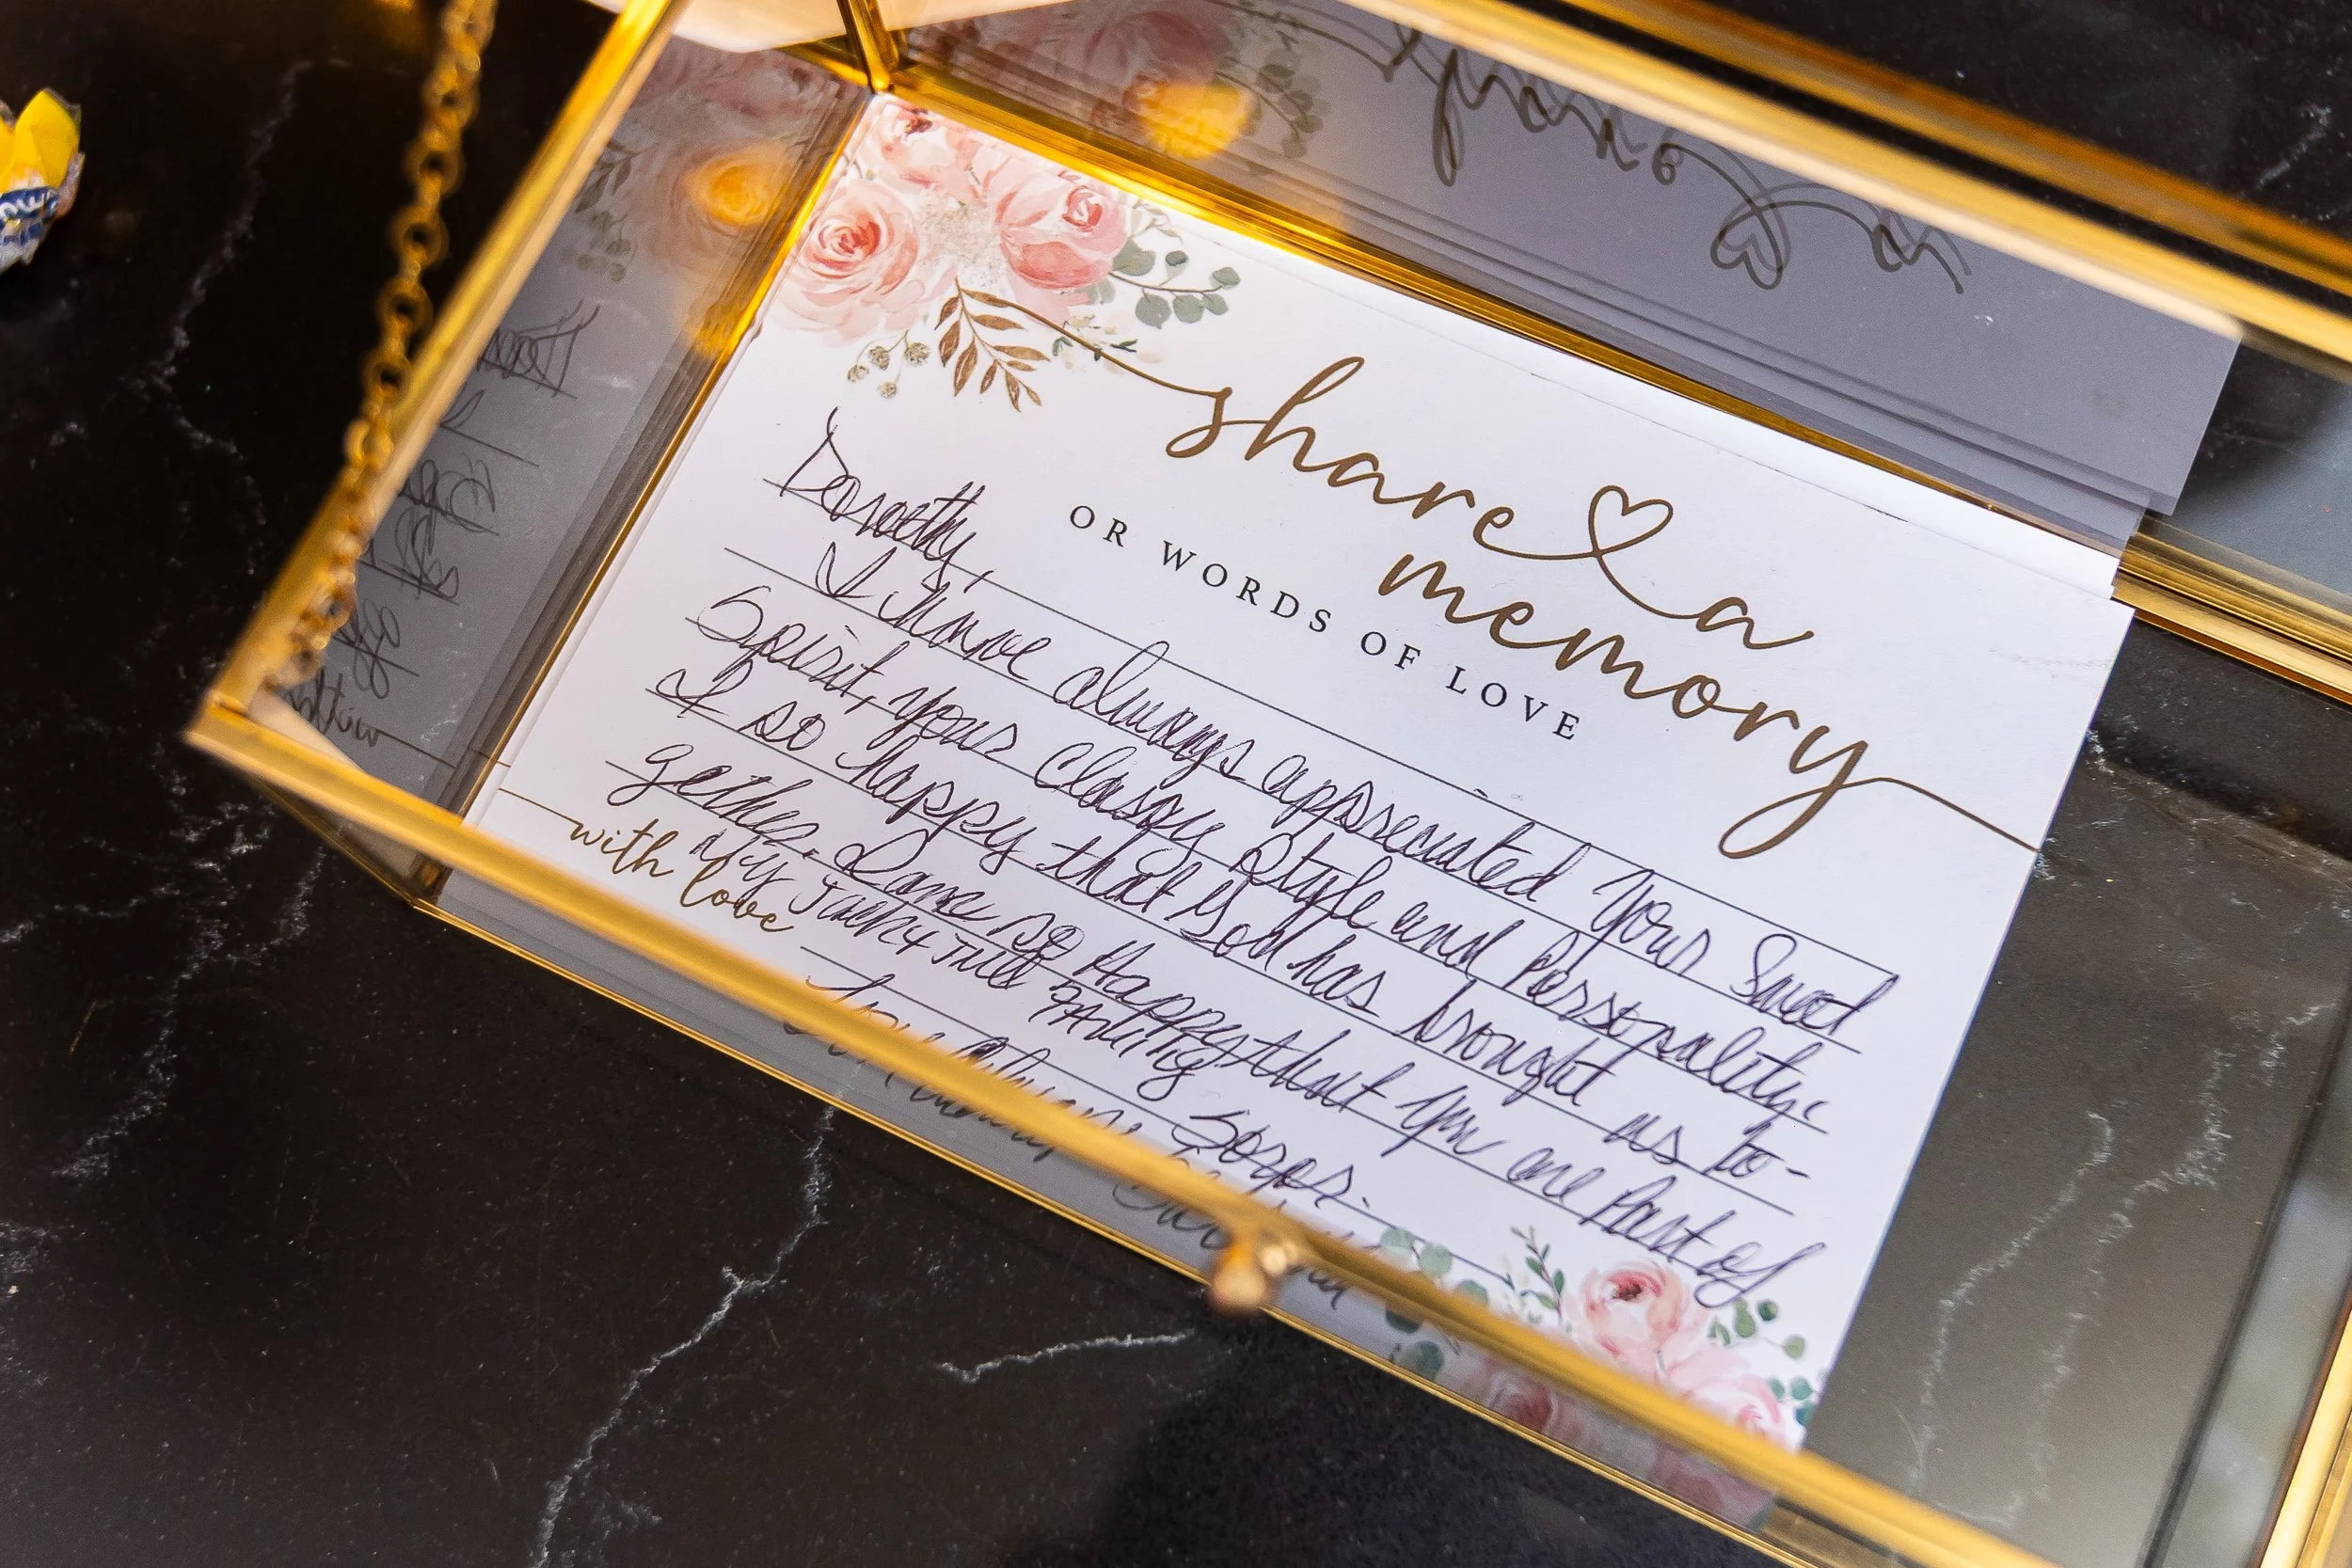 share a
memory
OR WORDS OF LOVE
Dorothy,
I have always appreciated your Sweet
Spirit, your Classy Style and Personality.
I so happy that God has brought us to-
gether. I am so Happy that you are Part of
My Jack & Jill FAMILY
with love